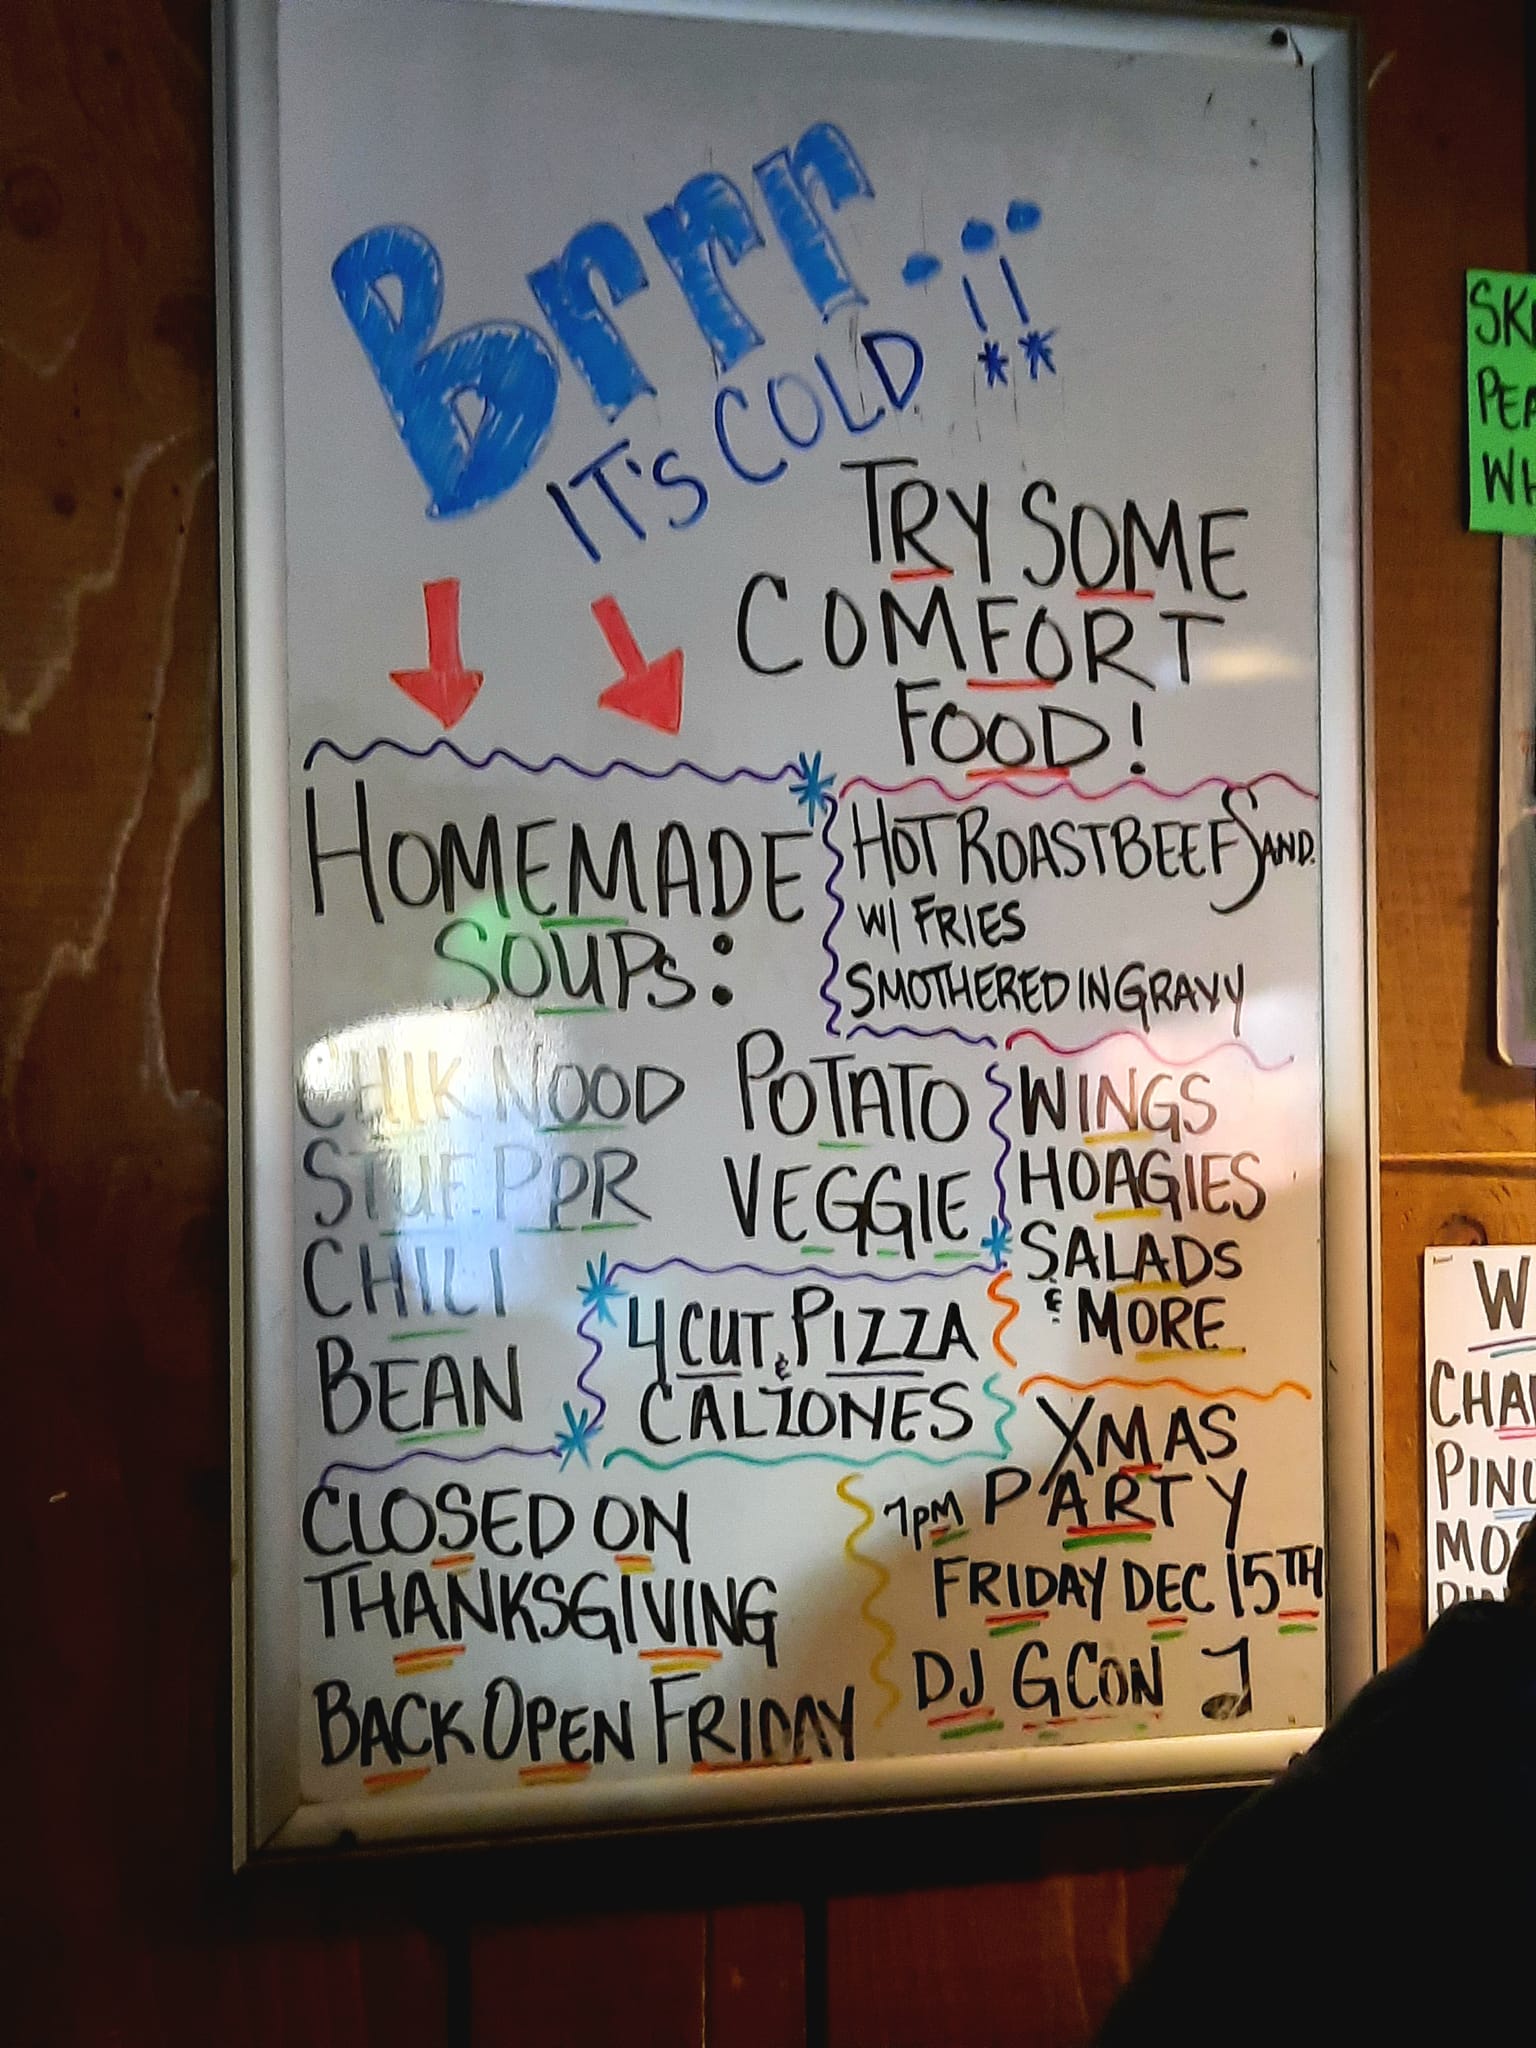 Brrr...
IT'S COLD !!
**
TRY SOME
COMFORT
FOOD!
HOMEMADE
SOUPS:
CHIK NOOD
STUF. PPR
CHILI
BEAN
POTATO
VEGGIE
HOT ROAST BEEF SAND.
W/ FRIES
SMOTHERED IN GRAVY
WINGS
HOAGIES
SALADS
& MORE
4 CUT PIZZA
&
CALZONES
CLOSED ON
THANKSGIVING
BACK OPEN FRIDAY
XMAS
7PM PARTY
FRIDAY DEC 15TH
DJ G CON